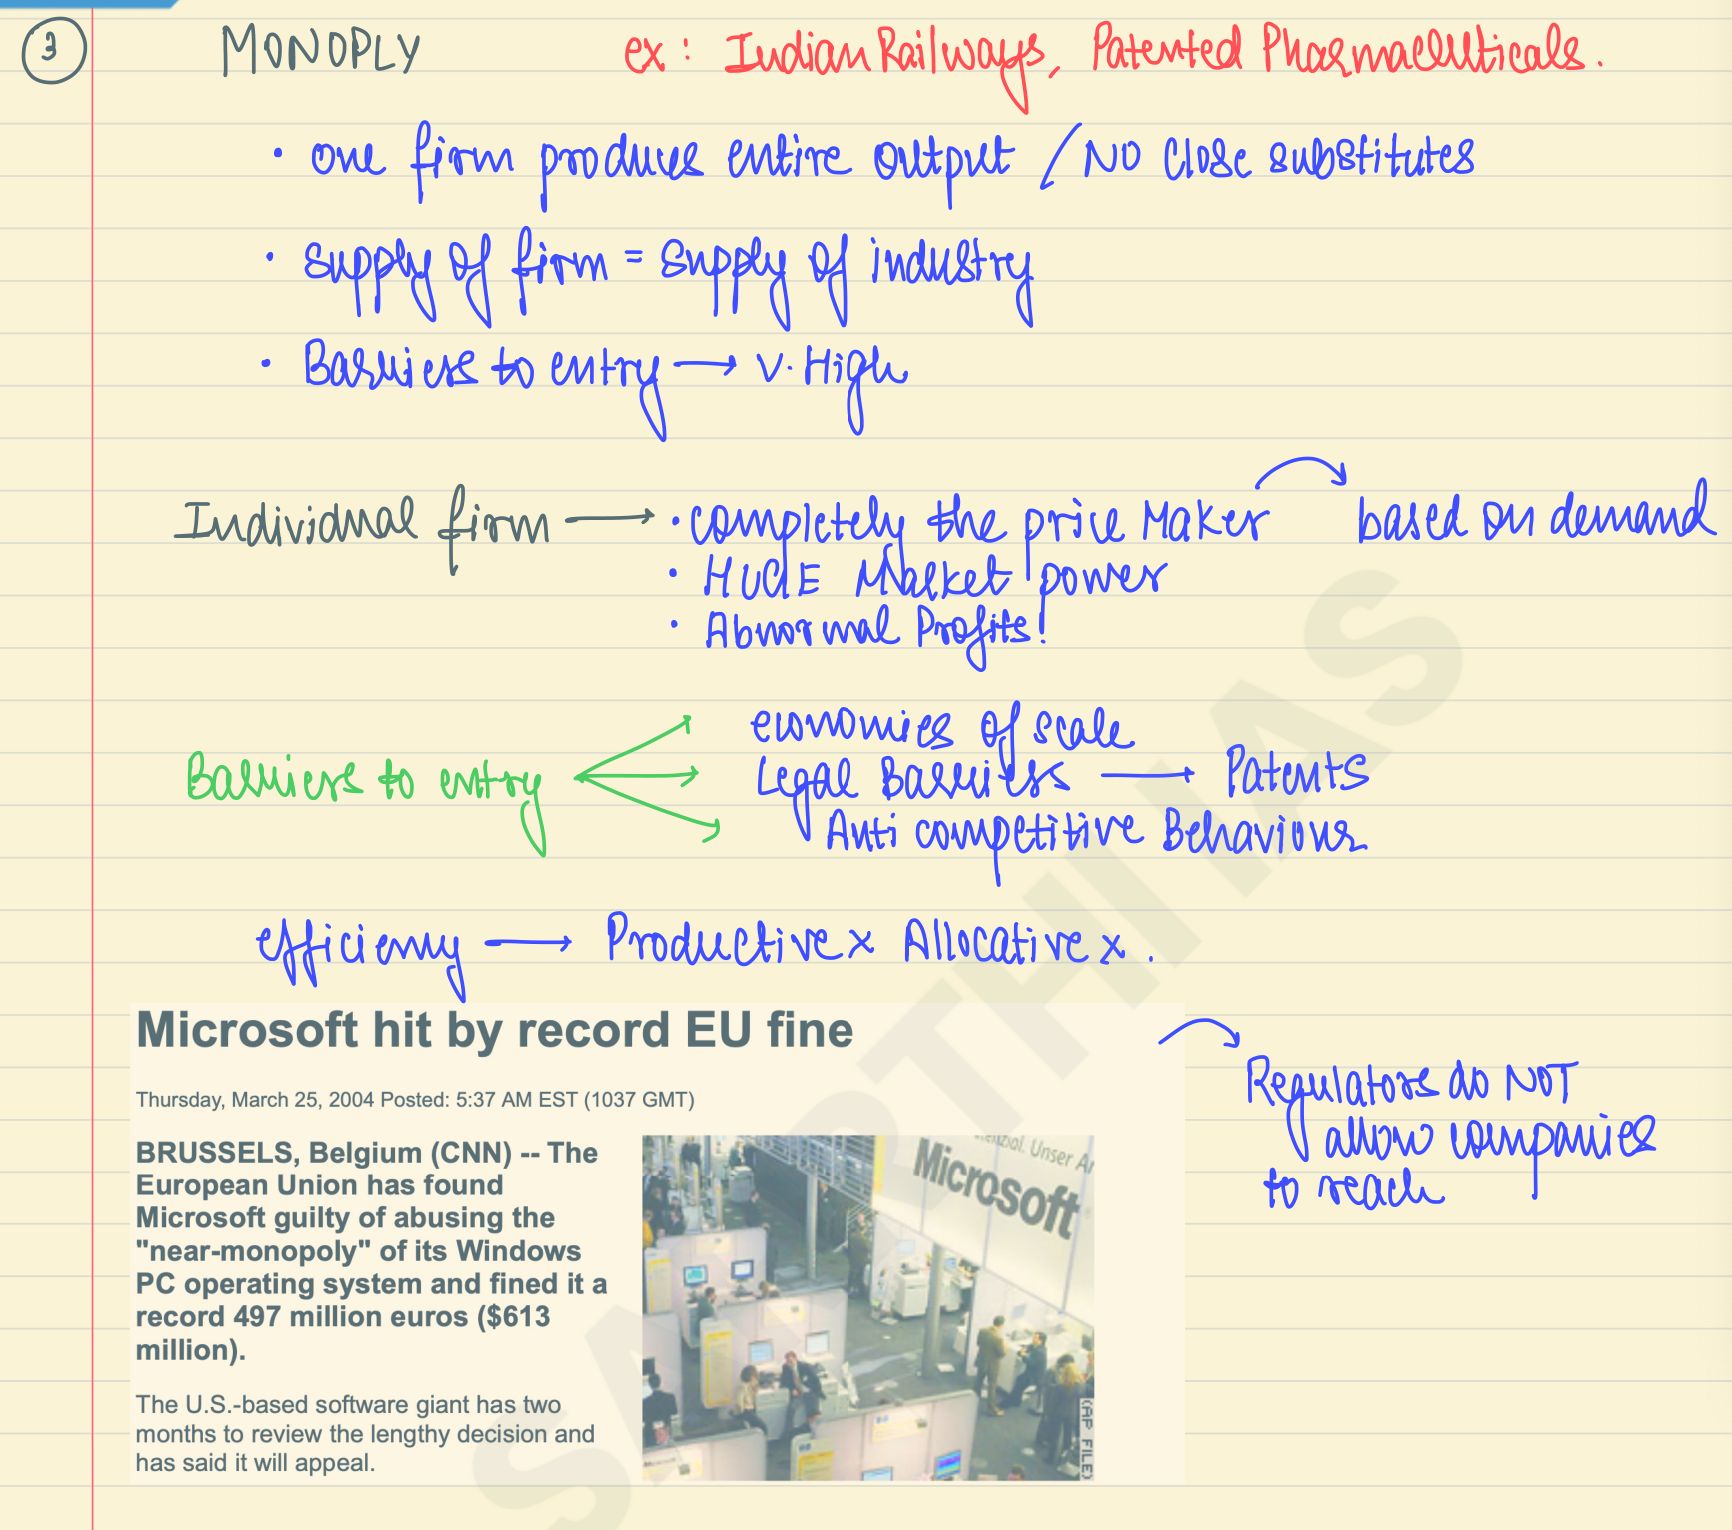 3 MONOPLY ex: Indian Railways, Patented Pharmaceuticals.
• one firm produces entire output / No close substitutes
• supply of firm = supply of industry
• Barriers to entry → v. High
Individual firm → • completely the price Maker → based on demand
• HUGE Market power
• Abnormal Profits!
Barriers to entry
economies of scale
Legal Barriers → Patents
Anti competitive Behaviour
efficiency → Productive x Allocative x.
Microsoft hit by record EU fine
Thursday, March 25, 2004 Posted: 5:37 AM EST (1037 GMT)
BRUSSELS, Belgium (CNN) -- The
European Union has found
Microsoft guilty of abusing the
"near-monopoly" of its Windows
PC operating system and fined it a
record 497 million euros ($613
million).
The U.S.-based software giant has two
months to review the lengthy decision and
has said it will appeal.
Unser
Microsoft
(AP FILE)
Regulators do NOT
allow companies
to reach
SARTHI IAS